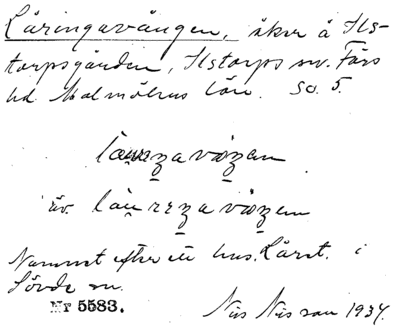 Låringavången, åker å Ils-
torpsgården, Ilstorps sn. Färs
hd. Malmöhus län. So. 5.
äv.
Namnet efter ett hus. Låret. i
Sövde sn.
Nr 5583. Nils Nilsson 1934.